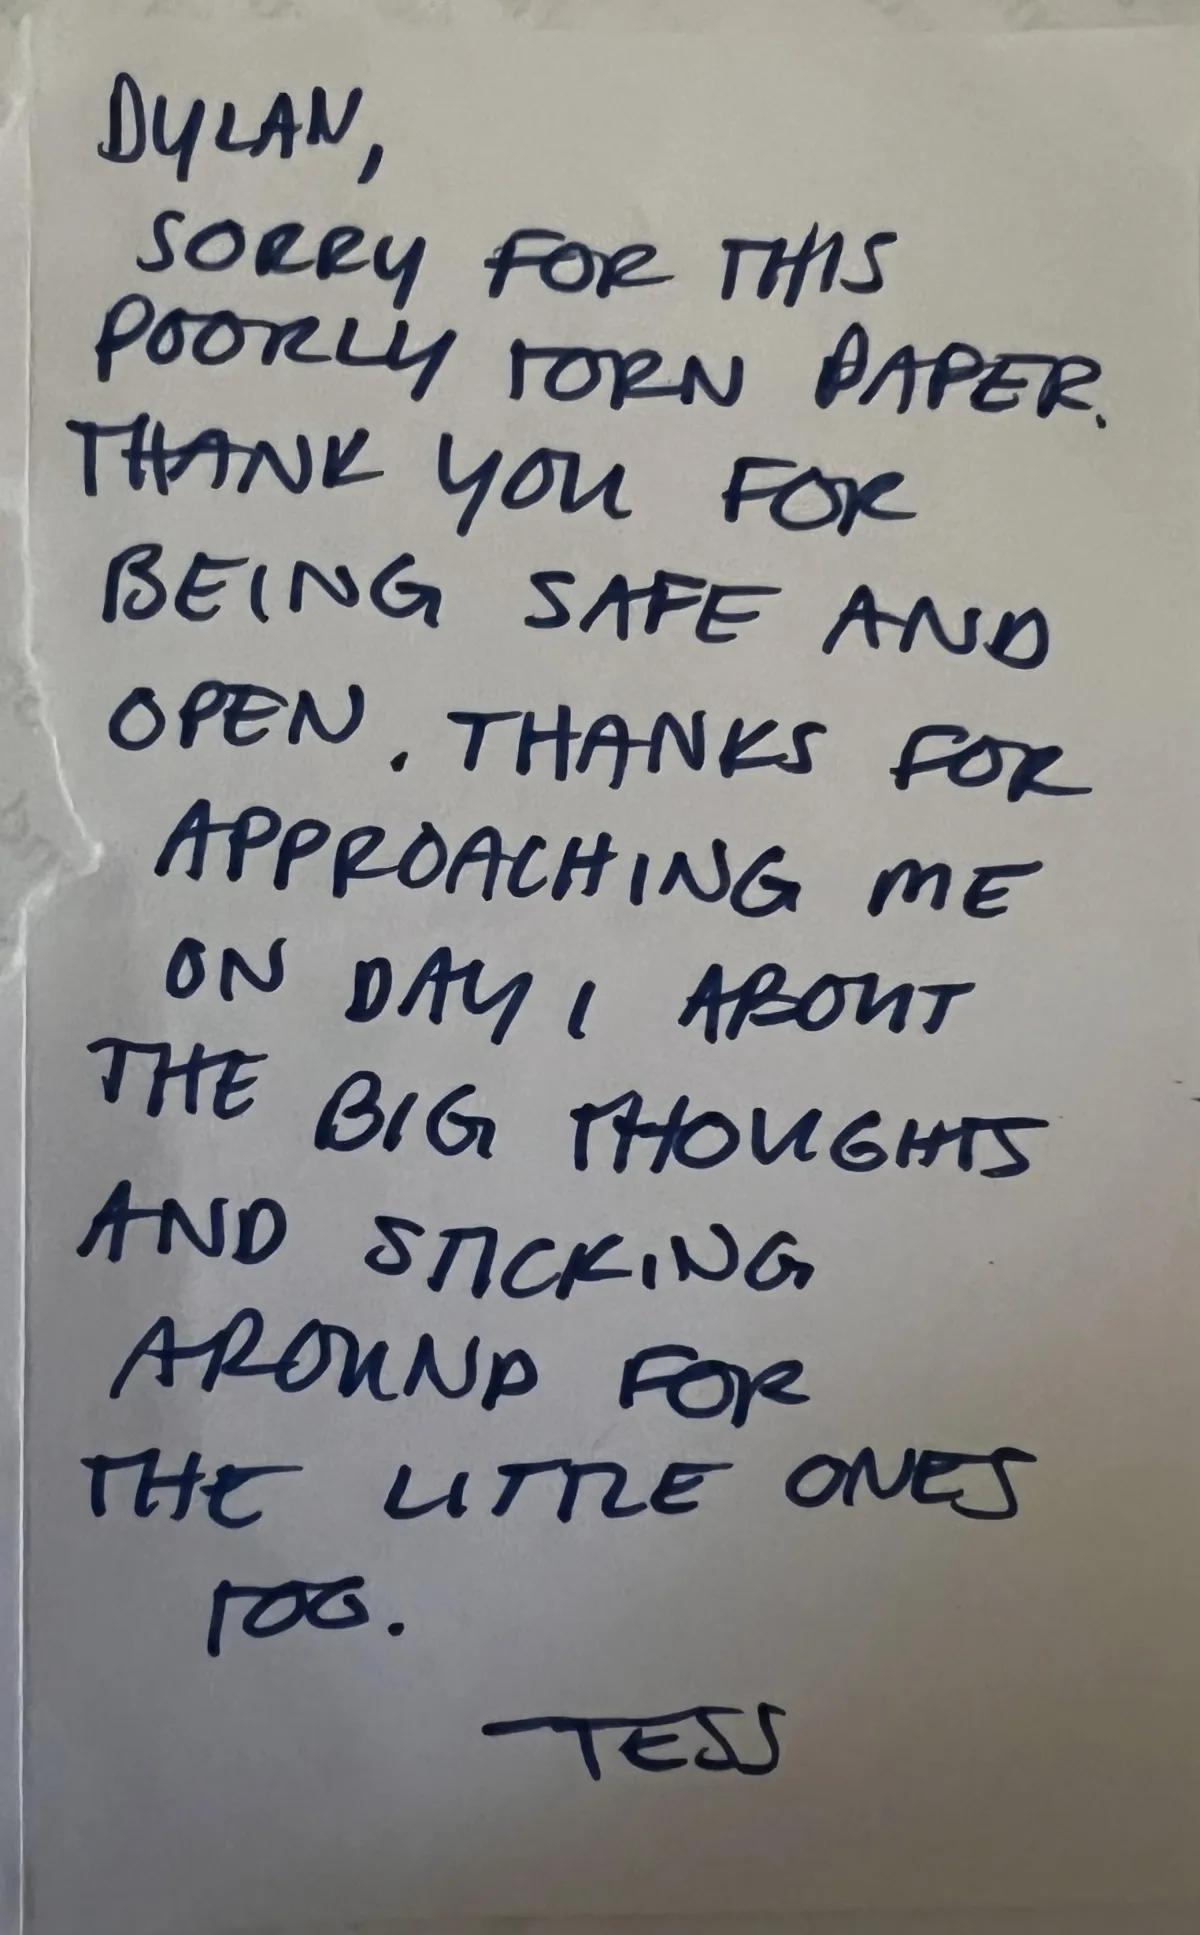 DYLAN,
SORRY FOR THIS
POORLY TORN PAPER.
THANK YOU FOR
BEING SAFE AND
OPEN. THANKS FOR
APPROACHING ME
ON DAY 1 ABOUT
THE BIG THOUGHTS
AND STICKING
AROUND FOR
THE LITTLE ONES
TOO.
TESS